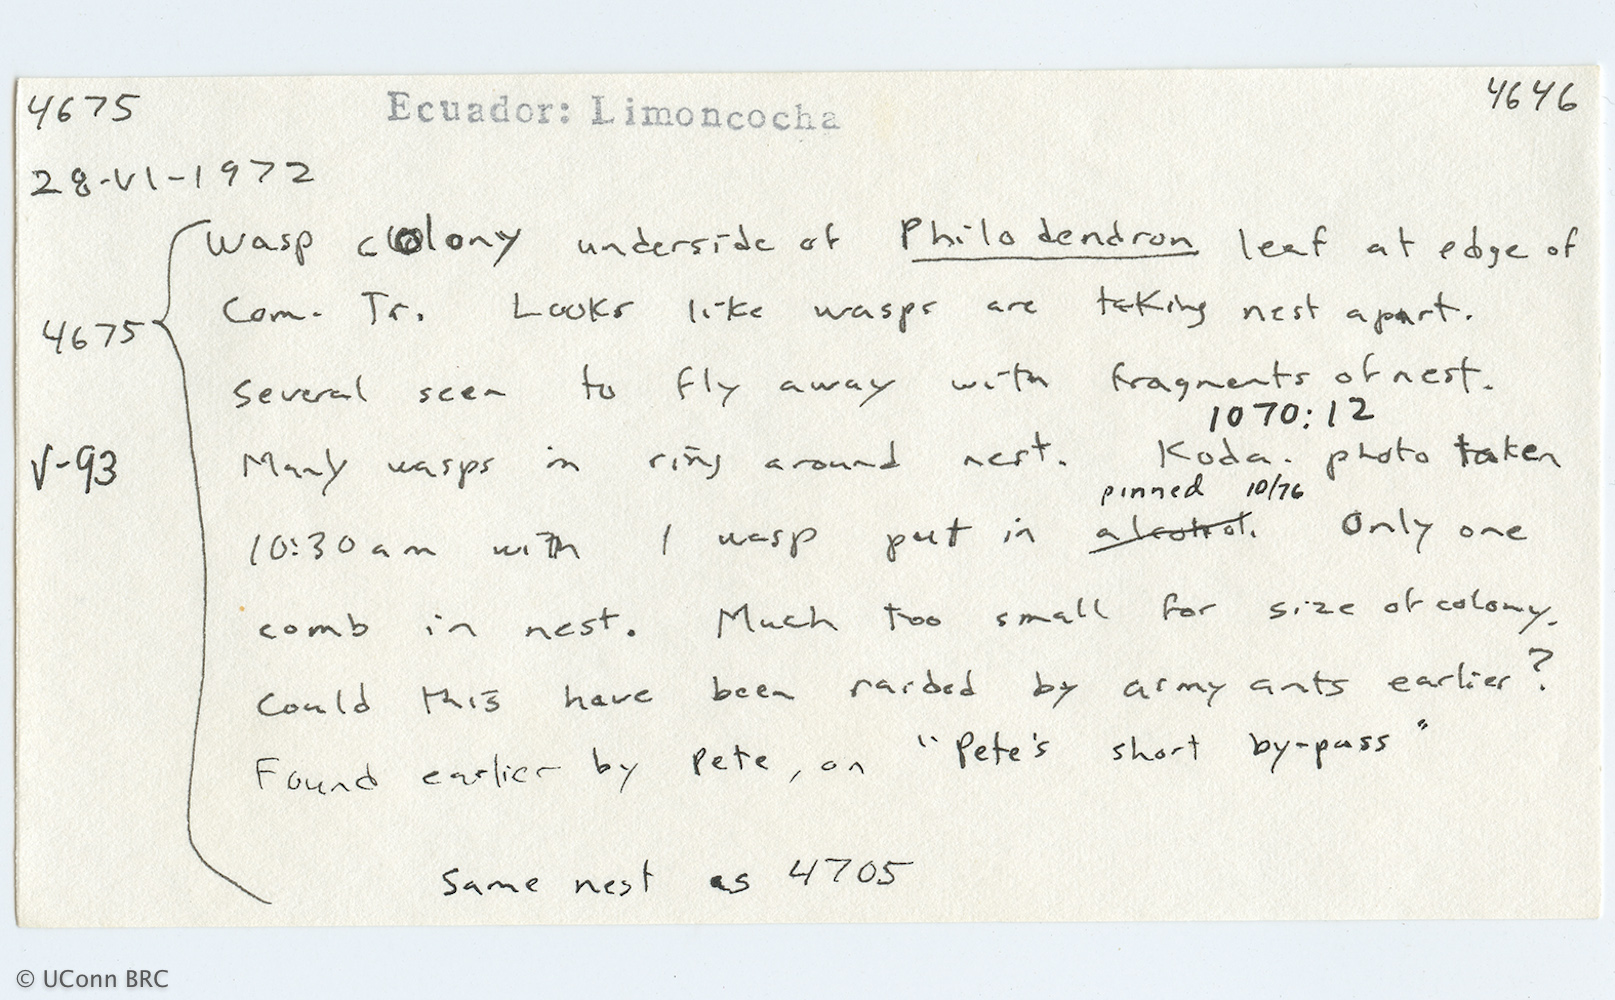 4675 Ecuador: Limoncocha 4646
28-VI-1972
Wasp colony underside of Philodendron leaf at edge of
4675 Com. Tr. Looks like wasps are taking nest apart.
Several seen to fly away with fragments of nest.
1070:12
V-93 Many wasps in ring around nest. Koda. photo taken
pinned 10/76
10:30 am with 1 wasp put in alcohol. Only one
comb in nest. Much too small for size of colony.
Could this have been raided by army ants earlier?
Found earlier by Pete, on "Pete's short by-pass"
Same nest as 4705
© UConn BRC